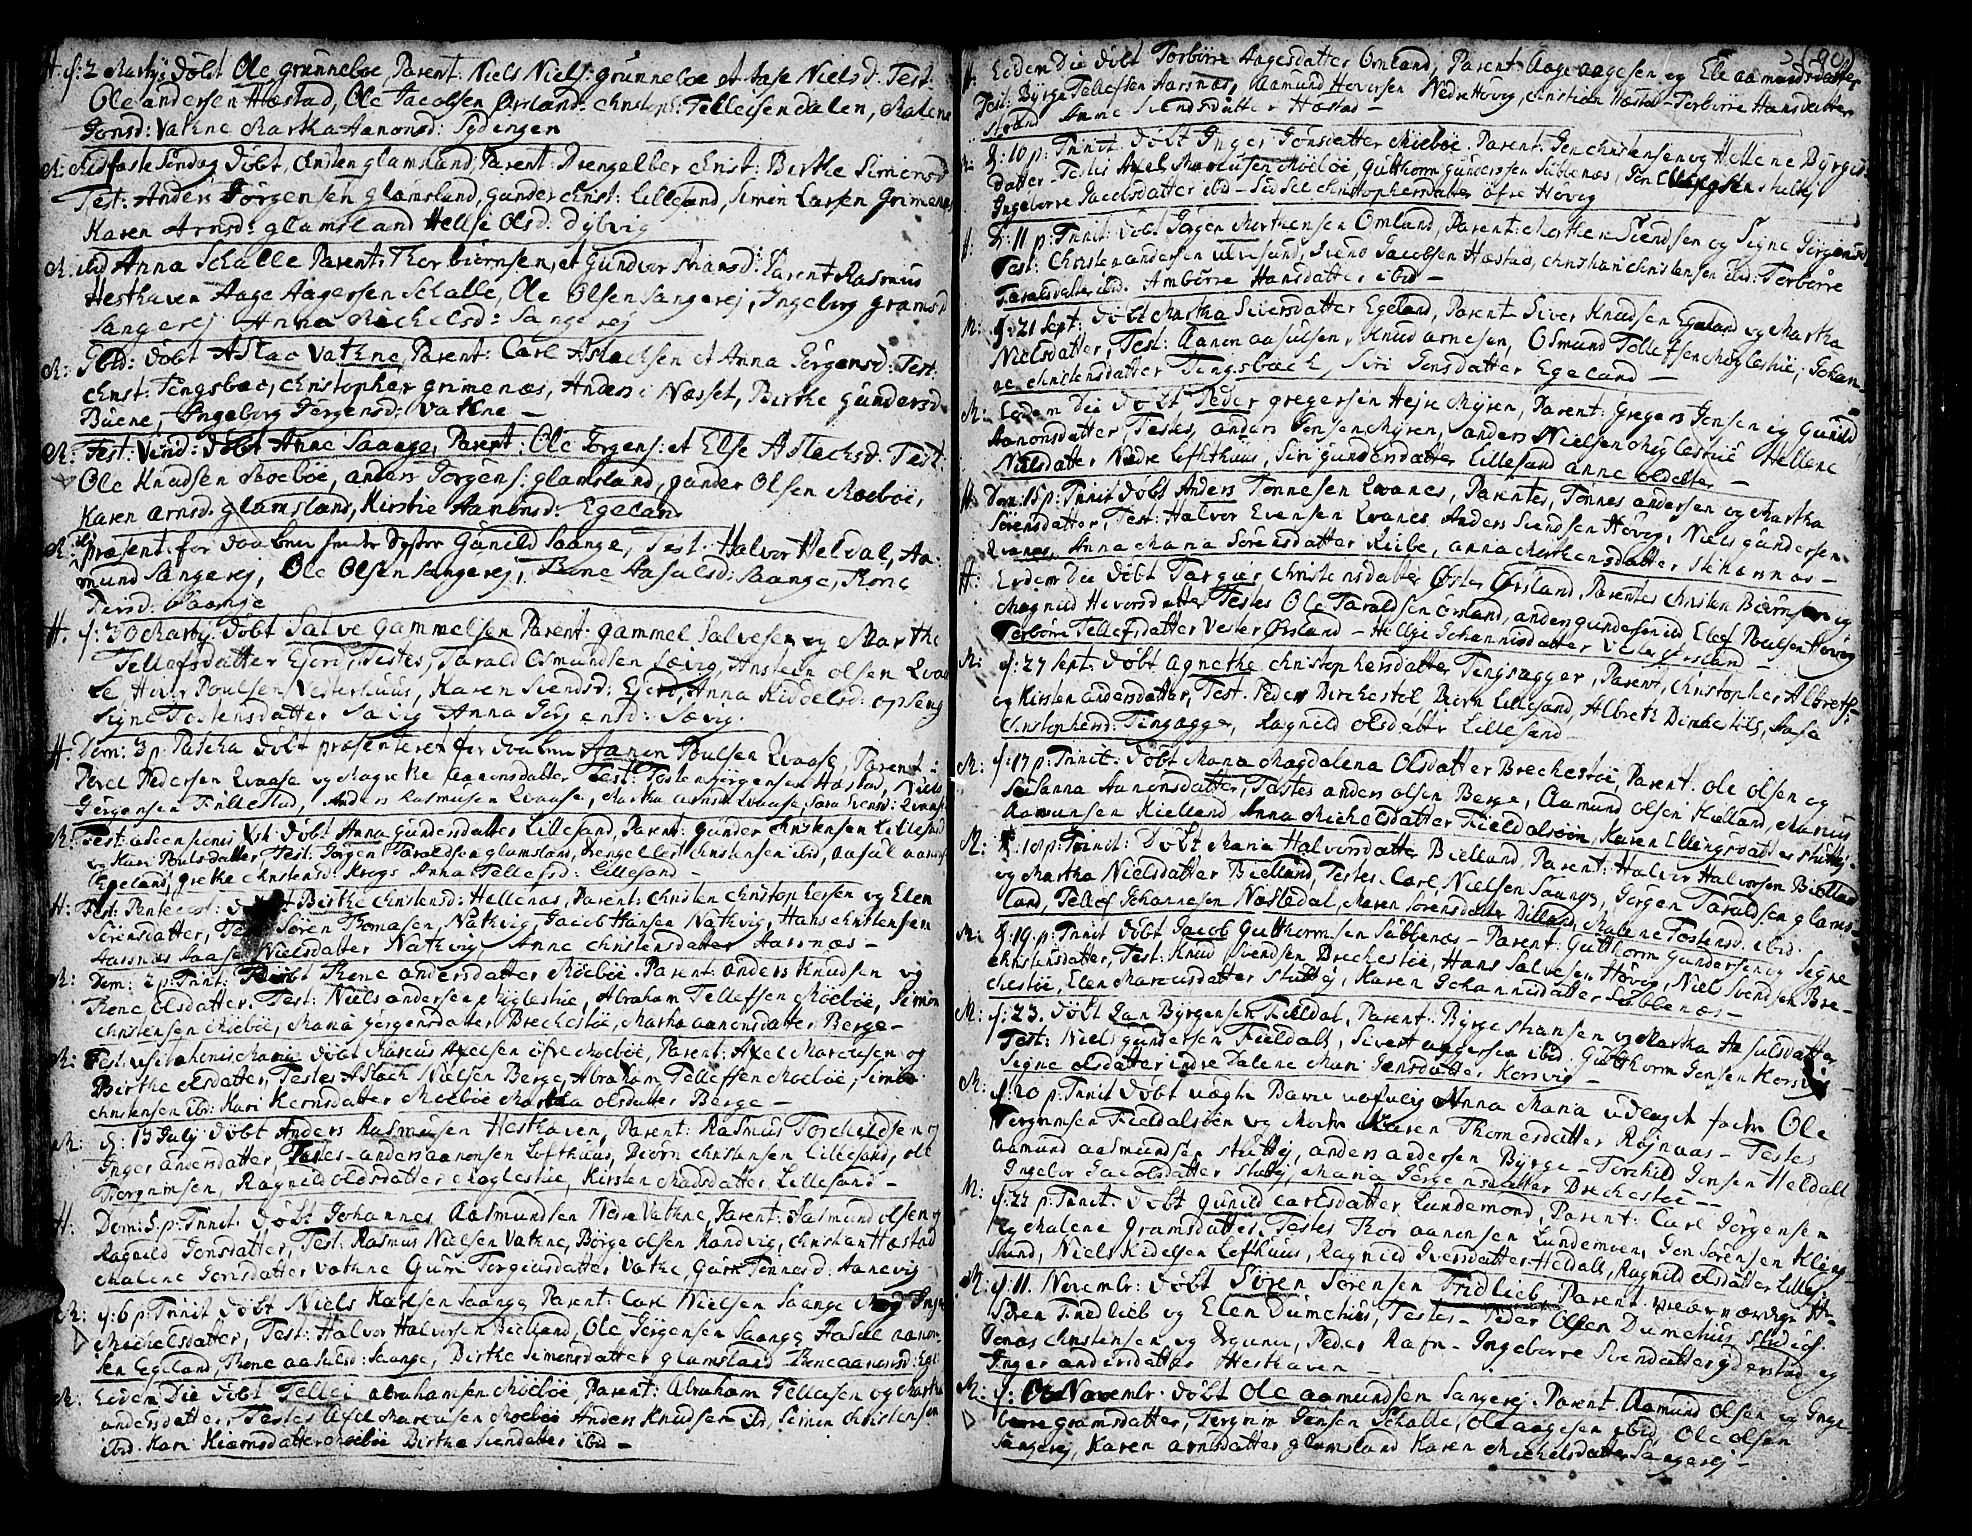 H. f: 2 Martij Døbt Ole grunneboe, Parent: Niels Niels: grunneboe et Aase Nielsd: Test:
Ole andersen Hæstad, Ole Jacobsen Ørsland. christoph: Tellefsen dalen, Malene
Jonsd: Vatne Martha Aanonsd: Tydingen
R: Midfaste Søndag Døbt, Christen glamsland, Parent: Drengelber Christ: Birthe Simensd
Test: Anders Jørgensen glamsland, gunder christ: Lillesand, Simon Larsen Grimenæs
Karen Arnsd: glamsland Hellje Olsd. dybvig
R. ibid Anna Schalle Parent: Thor biørnsen, et Gundvor Hansd: Parent Rasmus
Hesthaven Aage Aagersen Schalle, Ole Olsen Sangerej, Ingeborg gramsd
Sangerej Anna Michelsd: Sangerej
R: Døbt Aslac Vatne, Parent: Carl Aslachsen et Anna Jørgensd: Test:
Christ: Tingsbac, christopher grimenæs, Anders Næsset, Birthe gundersd
Buene, Ingeborg Jørgensd: Vatne —
R: Fest: Visid: Døbt Anne Saange, Parent: Ole Jørgens: et Else Aslachsd. Test:
Ole Knudsen Moeboe, anders Jørgens: glamsland, gunder Olsen Moeboe,
Karen arnsd. glamsland, Kirstie Aanonsd: Egeland
R: præsent: for daaben Gunild Saange, Test: Halvor Heldal, Aa-
mund Sangerej, Ole Olsen Sangerej, Thone Aasulsd: Saange, Thone
Persd: Saange
H. f: 30 Martij. Døbt Salve gammelsen Parent: gammel Salvesen og Marthe
Tellefsdatter Ejern, Testes, Tarald Osmundsen Sævig, Anstein olsen Qvaa
se Hever Poulsen Vesterhuus, Karen Svends: Ejern, Anna Kiddelsd: opseng
Signe Tostensdatter Sævig Anna Jørgensd: Sævig.
H. Dom: 3 p: Pascha døbt præsenteret for daaben Aanon Poulsen Qvaase, Parent:
Povel Pedersen Qvaase og Magrethe Aanonsdatter Test: Tosten Jørgensen Hæstad, Niels
Jørgensen Trillestad, Anders Rasmusen Qvaase, Martha arnsd: Qvaase, Sara Evensd: Qvaase
R: Fest: ascensionis Xst: Døbt Anna gundersdatter Lillesand, Parent: gunder christensen Lillesand
og Kari Poulsdatter, Test: Jørgen Taraldsen glamsland, Drengelbert christensen ibid, Aasul aanons
Egeland, grethe christensd: Krogs Anna Tellefsd: Lillesand —
H: Fest: Pentecost: Døbt Birthe Christensd: Hellenæs, Parent: Christen Christophersen og Elen
Sørensdatter, Test: Søren Tomasen, Natvig, Jacob Hansen Natvig, Hans christensen
Aarsnæs Aase Nielsdatter Natvig, Anne christensdatter Aarsnæs —
R: Dom: 2 p: Trinit: Døbt Thone andersdatter Moeboe. Parent: anders Knudsen og
Thone Olsdatter. Test: Niels andersen Møglestue, Abraham Tellefsen Moeboe, Simon
christensen Moeboe, Maria Jørgensdatter Brechestøe, Martha aanonsdatter Berge —
R: Fest: visitationis Mariæ Døbt Marcus Axelsen øfre Moeboe, Parent: Axel Marcusen og
Birthe Olsdatter, Testes Aslach Nielsen Berge, Abraham Tellefsen Moeboe, Simon
christensen ibid: Kari Hernsdatter Moeboe Martha olsdatter Berge —
R: f: 13 Julij døbt Anders Rasmusen Hesthaven, Parent: Rasmus Torchildsen og
Inger andersdatter, Testes - anders aanonsen Lofthuus, Biørn christensen Lillesand, ole
Torgrimsen, Ragnild oldsdatter Moglestue, Kirsten Madsdatter Lillesand —
H: Dom: 5 p: Trinit: Døbt Johannes Aasmundsen Nedre Vatne, Parent: Aasmund olsen og
Ragnild Jonsdatter, Test: Rasmus Nielsen Vatne, Børge olsen Randvig, christian Hæstad
Malene Jonsdatter Vatne Guri Torgiersdatter Vatne, Guri Tønnesd: Aanevig
R: f: 6 p: Trinit Døbt Niels Karlsen Saange Parent: Carl Nielsen Saange og Inger
Michelsdatter, Test: Halvor Halvorsen Bielland, Ole Jørgensen Saange Aasul aanon-
sen Egeland, Thone aasulsd: Saange, Birthe Simensdatter glamsland Thone aanonsd: Ege
R: Eodem Die døbt Tellef abrahamsen Moeboe, Parent: Abraham Tellefsen og Martha
andersdatter, Testes Axel Marcusen Moeboe Anders Knudsen ibid, Simen christensen
ibid. Kari Hiernsdatter Moeboe Birthe Svendatter ibid —
H. Eodem die døbt Torborre Aagesdatter Omland, Parent: Aage aagesen og Ele aamundsdatter
Test: Byrge Tellefsen Aarsnæs, Aamund Heversen Nedre Hovig, Christian Hæstad - Torborre Hansdatter
Strand Anne Svendsdatter Hæstad —
R: f: 10 p: Trinit: Døbt Inger Jonsdatter Moeboe. Parent: Jon christensen og Hellene Byrges
datter - Testes Axel Marcusen Moeboe, Gutthorm Gundersen Subbenæs, Jon Ellefsen stutthej
Ingeborre Jacobsdatter ibid - Sidsel christophersdatter øfre Hovig
H. f: 11 p: Trinit: Døbt Jørgen Mortensen Omland, Parent: Morthen Svendsen og Signe Jørgensd
Test: Christen andersen ulvesund, Svend Jacobsen Hæstad, christian christensen ibid: Torborre
Taraldsdatter ibid. Amborre Hansdatter ibid —
R: f: 21 Sept: Døbt Martha Siversdatter Egeland, Parent: Siver Knudsen Egeland og Martha
Nielsdatter, Test: Aanon aasulsen, Knud arnesen, Osmund Tellefsen Møglestue, Johan-
ne christensdatter Tingsbæch, Siri Jonsdatter Egeland —
R: Eodem die døbt Peder gregersen Hejre Myren, Parent: Gregers Jensen og Gunild
Aanonsdatter, Testes, anders Jensen Myren, anders Nielsen Møglestue Hellene
Nielsdatter Nedre Lofthuus, Siri gundersdatter Lillesand anne oldsdatter —
H. Dom: 15 p: Trinit Døbt Anders Tønnesen Qvanes, Parentes, Tønnes andersen og Martha
Sørensdatter, Test: Halvor Evensen Qvanes Anders Svendsen Hovig, Niels gundersen
Qvanes, Anna Maria Sørensdatter Reibe, anna Mortensdatter Stenennæs —
H: Eodem Die døbt Targier christensdatter Øster Ørsland, Parentes christen Biørnsen og
Magnild Heversdatter Testes Ole Taraldsen ørsland, anders gundersen ibid Elef Poulsen Hovig
Torborre Tellefsdatter Vester Ørsland - Hellje Johannisdatter Vester ørsland —
R: f: 27 sept: Døbt Agnethe christophersdatter Tingsagger, Parent, christopher Albrets:
og Kirsten andersdatter, Test: Peder Birchestøl, Biørn Lillesand, Albreth Birchestøls, Aase
Christophersd: Tingagge, Ragnild olsdatter Lillesand
R: f: 17 p: Trinit: Døbt Maria Magdalena Olsdatter Brechestøe, Parent: ole olsen og
Susanna Aanonsdatter, Testes anders olsen Berge, Aamund olsen Kielland, Marius
Aamunsen Kielland Anna Michelsdatter Fieldalsøen, Karen Ellingsdatter stuttej
R: f: 18 p: Trinit: Døbt Maria Halvorsdatter Bielland, Parent: Halvor Halvorsen Bielland
og Martha Nielsdatter Bielland, Testes. Carl Nielsen Saange, Jørgen Taraldsen glams-
land, Tellef Johannesen Næstedal, Maren Sørensdatter Dilland, Malene Tostensd: ibid.
R: f: 19. p: Trinit Døbt Jacob Gutthormsen Subbenæs - Parent: Gutthorm Gundersen og Segne
christensdatter, Test: Knud Svendsen Brechestøe, Hans Salvesen Hovig, Niels Svendsen Bre-
chestøe, Elen Marcusdatter Stuttej, Karen Johannisdatter Subbenæs —
R: f: 23. Døbt Jan Byrgensen Fieldal, Parent: Byrge Hansen og Martha Aasulsdatter
Test: Niels gundersen Fieldall, Sivert aggersen ibid. Gutthorm Jensen Korsvig
Segne olsdatter indre Dalene Mari Jensdatter Korsvig —
R: f: 20 p: Trinit Døbt uægte Barn nafnlig Anna Maria udlagt fader Ole
Torgrimsen Fieldalsøen og Moder Karen Thomesdatter Røjnaas - Testes
Aamund aasmundsen stuttej, anders andersen Byrge - Torchild Jensen Heldall
Ingebor Jacobsdatter stuttej, Maria Jørgensdatter Brechestøe —
R: f: 22 p: Trinit: Døbt gunild Carlsdatter Lundemond, Parent: Carl Jørgensen
og Malene gramsdatter, Testes Thor aanonsen Lundemoen, Jon Sørensen Kling-
Sund, Niels Kidelsen Lofthuus, Ragnild Iversdatter Heldall, Ragnild olsdatter Lilles:
R: f: 11. Novembr: Døbt Søren Sørensen Fridlieb, Parent: velærværdige Hr
Søren Fridlieb og Elen Dumetius, Testes - Peder Olsen Dumetius studios.
Jonas christensen og Peder Rafn - Ingeborre Svendatter yderstad og
Inger andersdatter Hesthaven
R: f: Novembr: Døbt Ole aamundsen Sangerej. Parent Aamund olsen og Inge-
borre gramsdatter, Torgrim Jensen Schalle, ole aagesen ibid, Ole olsen
Sangerej, Karen arnsdatter glamsland Karen Michelsdatter Sangerej —